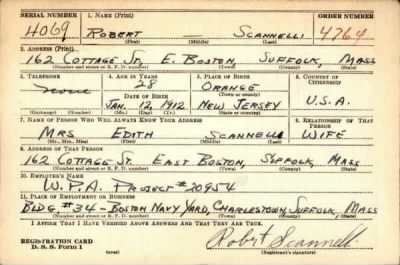 SERIAL NUMBER 1. NAME (Print) ORDER NUMBER
4069 ROBERT — SCANNELLI 4764
(First) (Middle) (Last)
2. ADDRESS (Print)
162 COTTAGE ST. E. BOSTON, SUFFOLK, MASS
(Number and street or R. F. D. number) (Town) (County) (State)
3. TELEPHONE 4. AGE IN YEARS 5. PLACE OF BIRTH 6. COUNTRY OF CITIZENSHIP
none 28 ORANGE
(Town or county)
DATE OF BIRTH
JAN. 12, 1912 NEW JERSEY U.S.A.
(Exchange) (Number) (Mo.) (Day) (Yr.) (State or country)
7. NAME OF PERSON WHO WILL ALWAYS KNOW YOUR ADDRESS 8. RELATIONSHIP OF THAT PERSON
MRS EDITH SCANNELLI WIFE
(Mr., Mrs., Miss) (First) (Middle) (Last)
9. ADDRESS OF THAT PERSON
162 COTTAGE ST. EAST BOSTON, SUFFOLK, MASS
(Number and street or R. F. D. number) (Town) (County) (State)
10. EMPLOYER'S NAME
W.P.A. PROJECT #20954
11. PLACE OF EMPLOYMENT OR BUSINESS
BLDG. #34 - BOSTON NAVY YARD, CHARLESTOWN, SUFFOLK, MASS
(Number and street or R. F. D. number) (Town) (County) (State)
I AFFIRM THAT I HAVE VERIFIED ABOVE ANSWERS AND THAT THEY ARE TRUE.
REGISTRATION CARD
D. S. S. Form 1 Robert Scannelli
(over) (Registrant's signature)